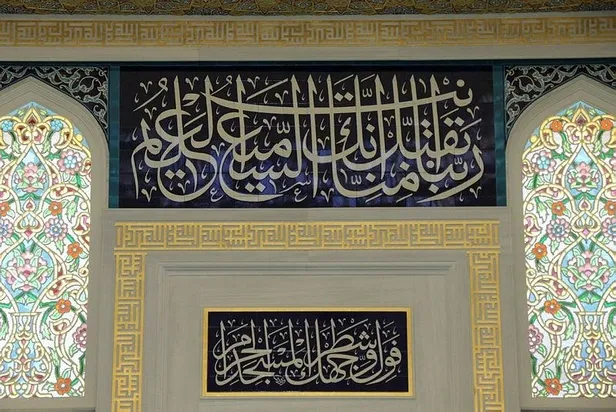 ربنا تقبل منا انك انت السميع العليم
فول وجهك شطر المسجد الحرام